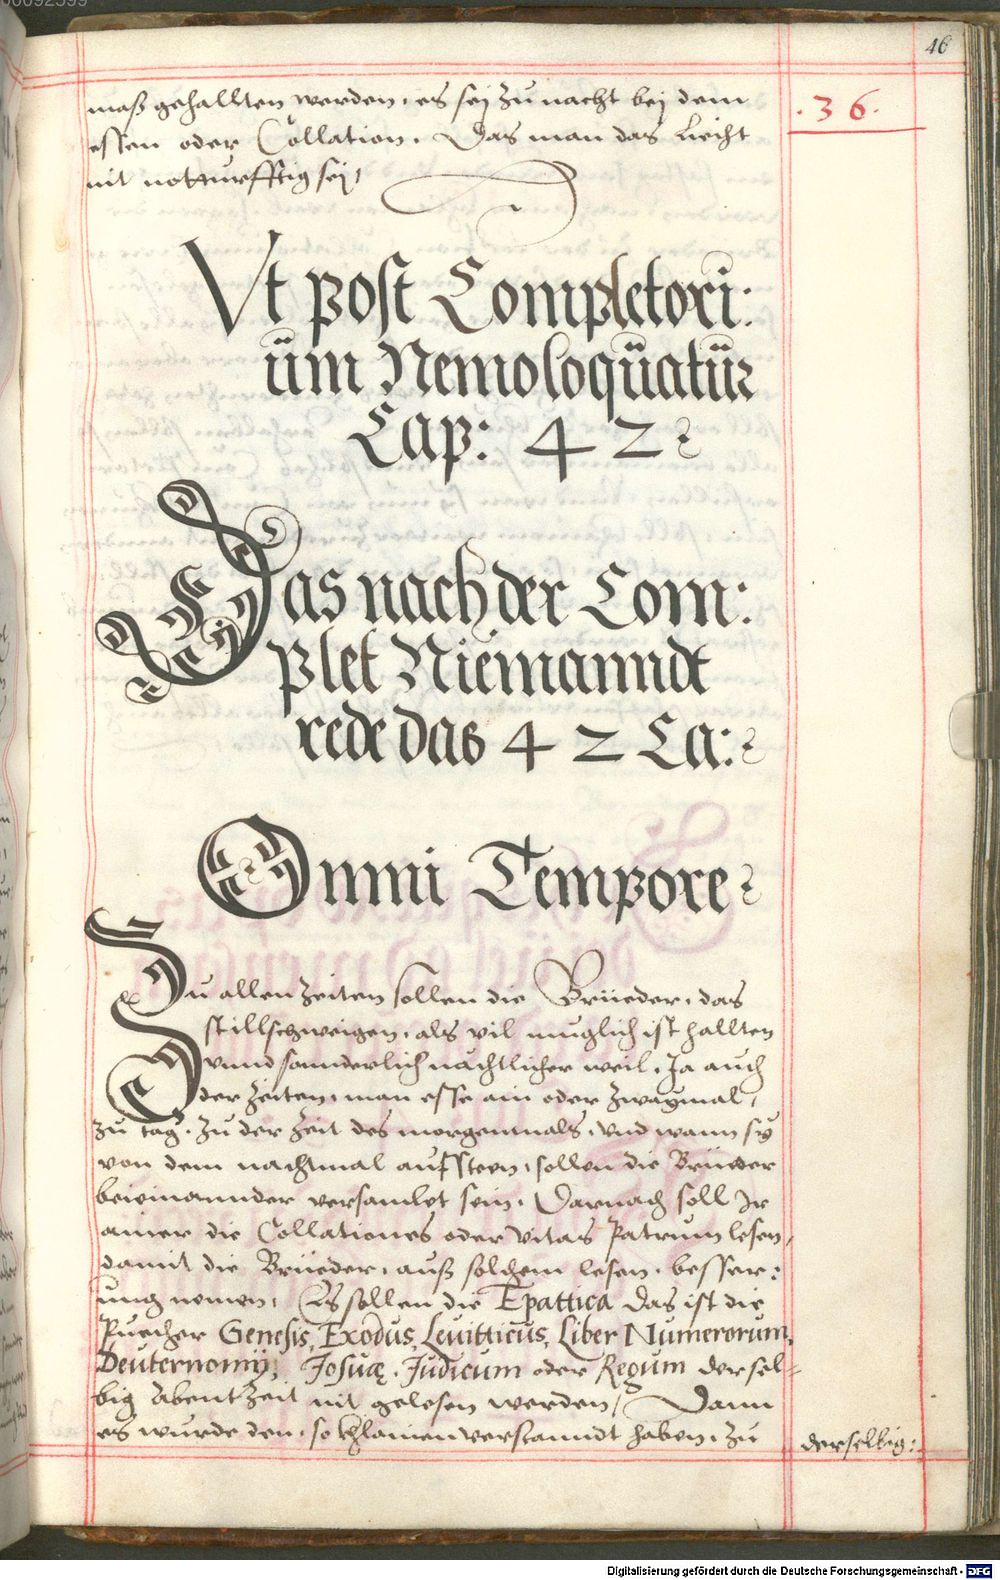 46
.36.
maß gehallten werden, es sej zu nacht bej dem
essen oder Collation. Das man das liecht
nit notturfftig sej,
Vt post Completori:
üm Nemo loqüatür
Cap: 42
Das nach der Com:
plet Niemanndt
rede das 42 Ca:
Omni Tempore
Zu allen zeiten sollen die Brüeder, das
stillschweigen, als vil muglich ist hallten
vnnd sonnderlich nächtlicher weil. Ja auch
der zeiten, man esse ain oder zwaymal,
zu tag, zu der zeit des morgenmals, vnd wann sÿ
von dem nachtmal aufsteen, sollen die Brüeder
beieinannder versamlet sein. Darnach soll Ir
ainer die Collationes oder Vitas Patrum lesen,
damit die Brüeder, auß solchem lesen, besser:
ung nemen, Es sollen die Epattica das ist die
Püecher Genesis, Exodus, Leuitticus, Liber Numerorum,
Deuternomij, Josuae, Judicum oder Regum derSel=
big Abent Zeit nit gelesen werden, Dann
es wurde den, so khlainen verstanndt haben, zu
derselbig:
Digitalisierung gefördert durch die Deutsche Forschungsgemeinschaft - DFG